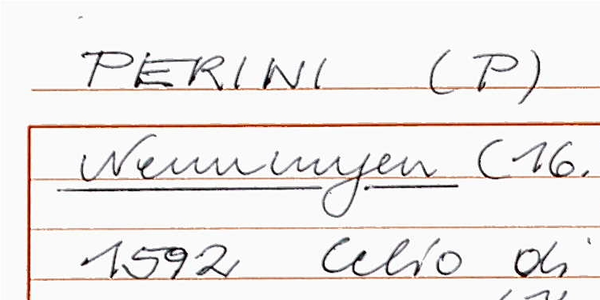 PERINI (P)
Nenningen (16.
1592 Celio di